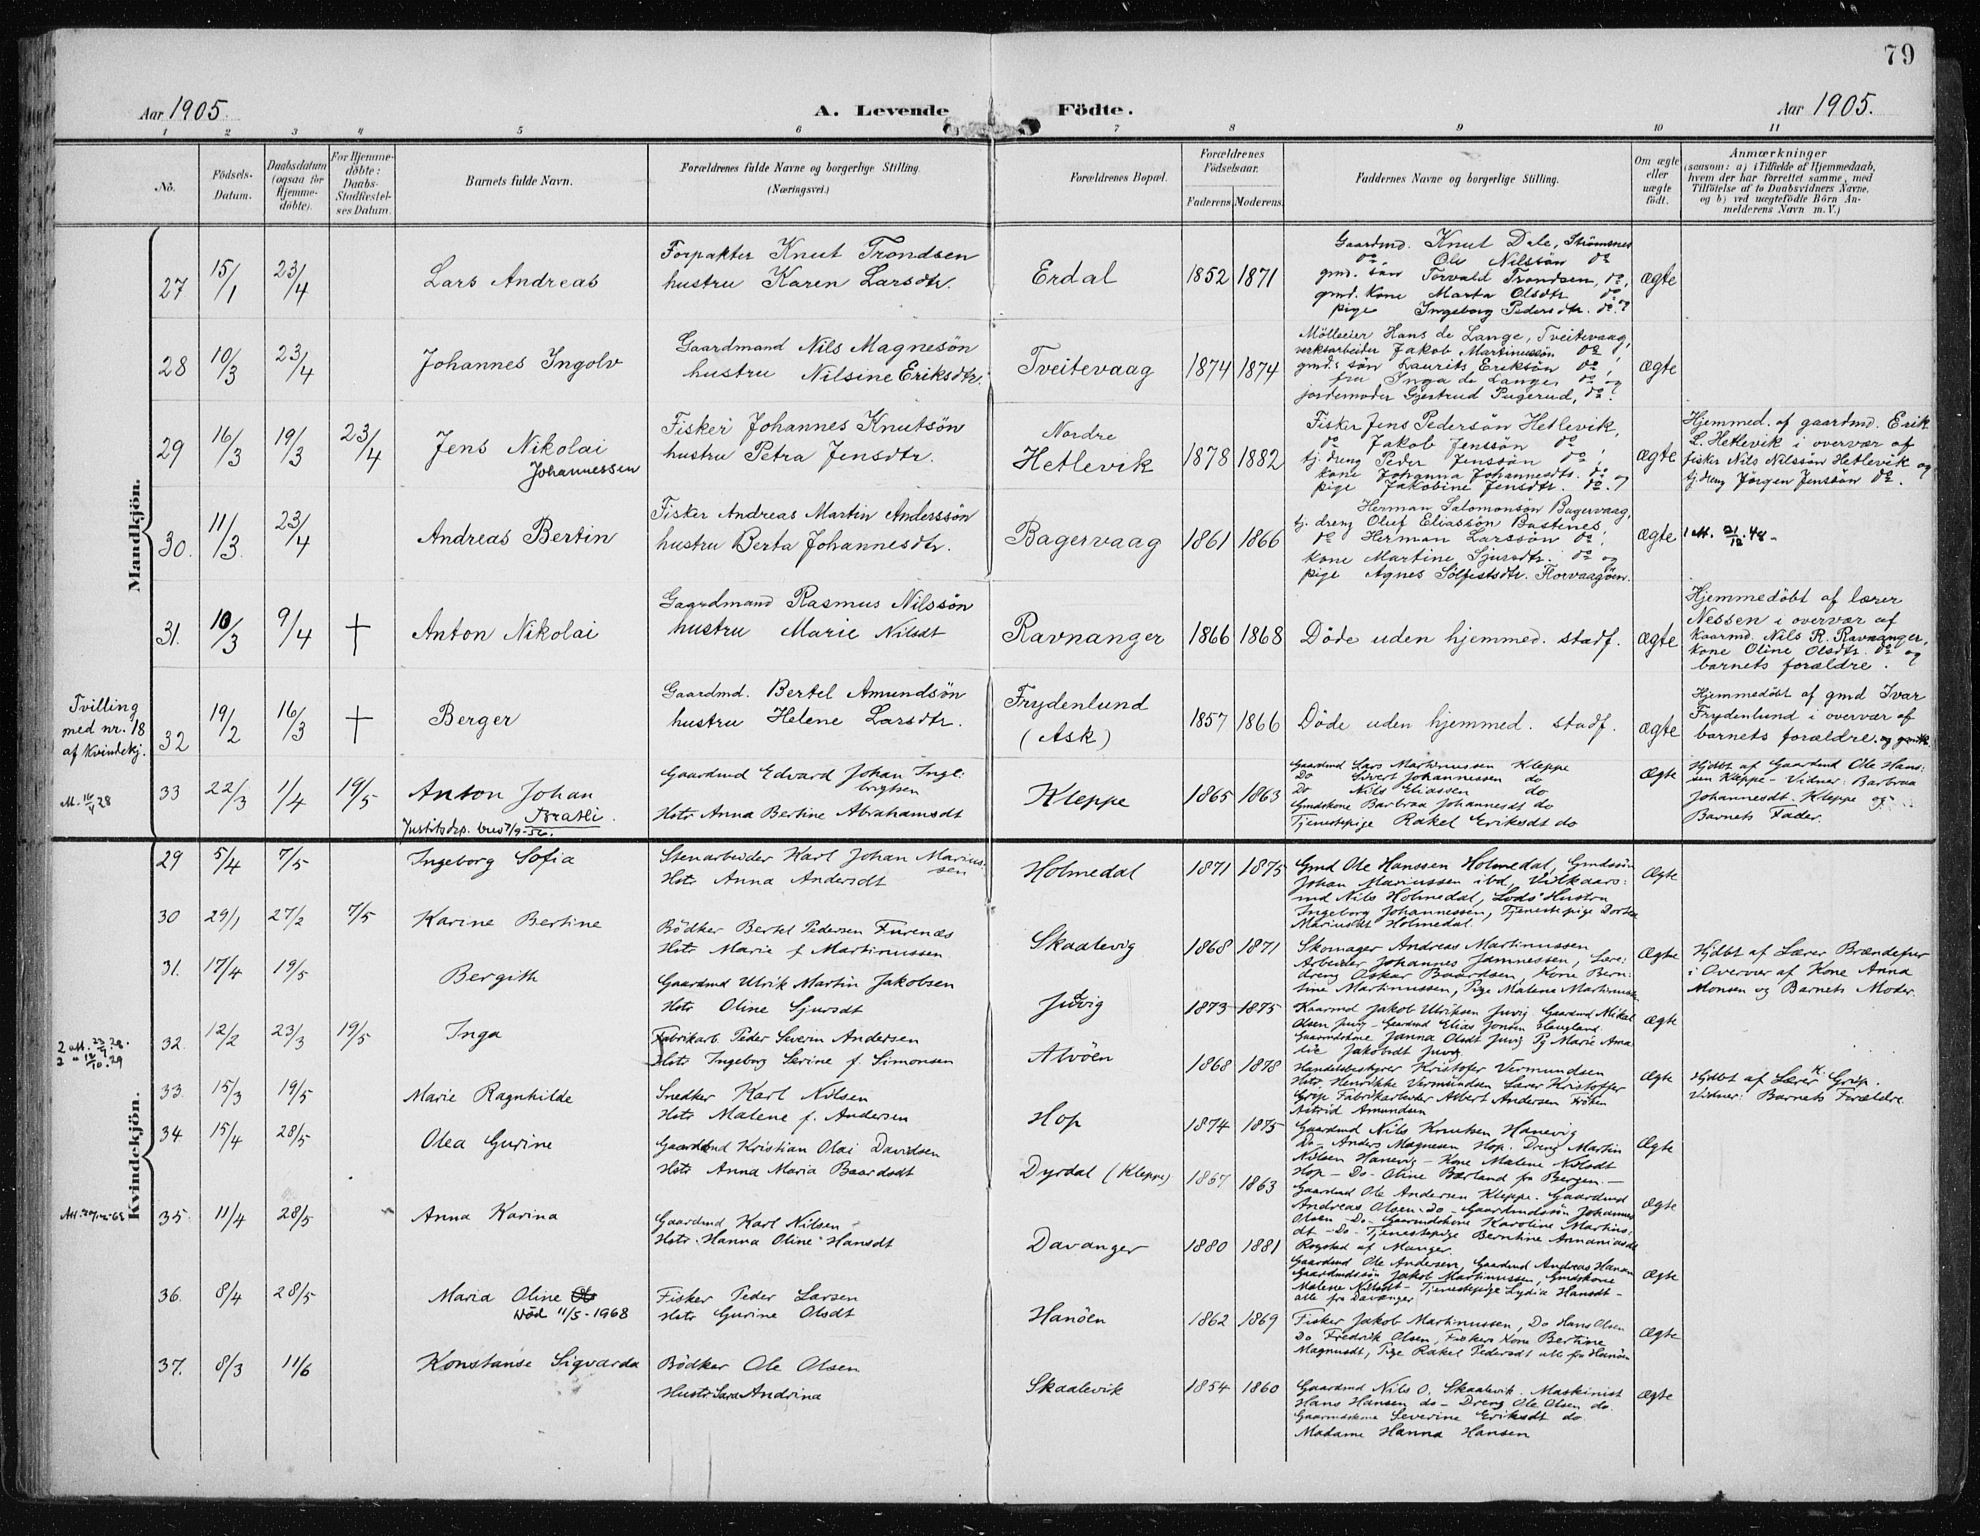 79
Aar 1905.
A. Levende Födte.
Aar 1905.
1 2 3 4 5 6 7 8 9 10 11
No.
Födsels-
Datum.
Daabsdatum
(ogsaa for
Hjemme-
döbte).
For Hjemme-
döbte:
Daabs-
Stadfæstel-
ses Datum.
Barnets fulde Navn.
Forældrenes fulde Navne og borgerlige Stilling.
(Næringsvei.)
Forældrenes Bopæl.
Forældrenes
Födselsaar.
Faderens Moderens
Faddernes Navne og borgerlige Stilling.
Om ægte
eller
uægte
födt.
Anmærkninger
(saasom: a) i Tilfælde af Hjemmedaab,
hvem der har forrettet samme, med
Tilföielse af to Daabsvidners Navne,
og b) ved uægtefödte Börn An-
melderens Navn m. V.)
Mandkjön.
27 15/1 23/4 Lars Andreas
Forpakter Knut Trondsen
hustru Karen Larsdtr.
Erdal 1852 1871
Gaardmd. Knut Dale, Strömsnes
do. Ole Nilssön do
gmd. sön Torvald Trondsen, do,
gmd. kone Marta Olsdtr. do
pige Ingeborg Pedersdtr. do.
ægte
28 10/3 23/4 Johannes Ingolv
Gaardmand Nils Magnesön
hustru Nilsine Eriksdtr.
Tveitevaag 1874 1874
Mölleeier Hans de Lange, Tveitevaag,
verksarbeider Jakob Martinussön do,
gmd.s sön Laurits Eriksön do,
fru Inga de Lange do og
jordemoder Gjertrud Pugerud, do.
ægte
29 16/3 19/3 23/4 Jens Nikolai
Johannessen
Fisker Johannes Knutsön
hustru Petra Jensdtr.
Nordre
Hetlevik 1878 1882
Fisker Jens Pedersön Hetlevik,
do Jakob Jenssön do,
tj. dreng Peder Jenssön do,
kone Johanna Johannesdtr. do
pige Jakobine Jensdtr. do.
ægte
Hjemmed. af gaardmd. Erik
L. Hetlevik i overvær af
fisker Nils Nilssön Hetlevik og
tj. dreng Jörgen Jenssön do.
30. 11/3 23/4 Andreas Bertin
Fisker Andreas Martin Anderssön
hustru Berta Johannesdtr.
Bagervaag 1861 1866
Herman Salomonsön Bagervaag,
tj. dreng Oluf Eliassön Bastines
do Herman Larssön do,
kone Martine Sjursdtr. do og
pige Agnes Sölfestsdtr. Florvaagöen.
ægte
1 M. 21/12.48.
31. 10/3 9/4 † Anton Nikolai
Gaardmand Rasmus Nilssön
hustru Marie Nilsdt
Ravnanger 1866 1868
Döde uden hjemmed. stadf.
ægte
Hjemmedöbt af lærer
Nessen i overvær af
kaarmd. Nils R. Ravnanger,
kone Oline Olsdtr. do og
barnets forældre.
Tvilling
med nr. 18
af Kvindekj.
32 19/2 16/3 † Berger
Gaardmd. Bertel Amundsön
hustru Helene Larsdtr.
Frydenlund
(Ask) 1857 1866
Döde uden hjemmed. stadf.
ægte
Hjemmedöbt af gmd Ivar
Frydenlund i overvær af
barnets forældre.
33 22/3 1/4 19/5 Anton Johan
Bratli.
Gaardmd Edvard Johan Inge-
brigtsen
Hstr Anna Bertine Abrahamsdt
Kleppe 1865 1863
Gaardmd Lars Martinussen Kleppe
Do Sivert Johannessen do
Do Nils Eliassen do
Gmdskone Barbraa Johannesdt do
Tjenestepige Rakel Eriksdt do
Ægte
Hjdbt af Gaardmd Ole Han-
sen Kleppe - Vidner: Barbraa
Johannesdt - Kleppe og
Barnets Fader.
Kvindekjön.
29 5/4 7/5 Ingeborg Sofia
Stenarbeider Karl Johan Marius-
sen
Hstr Anna Andersdt
Holmedal 1871 1875
Gmd Ole Hanssen Holmedal, Gmdssön
Johan Mariussen ibd, Vilkaars-
md Nils Holmedal, Lods Hustru
Ingeborg Johannessen, Tjenestepige Dortea
Mariusdt Holmedal.
Ægte
30 29/1 27/2 7/5 Karine Bertine
Bödker Bertel Pedersen Furenæs
Hstr Marie f. Martinussen
Skaalevig 1868 1871
Skomager Andreas Martinussen
Arbeider Johannes Jamnessen, Lære-
dreng Oskar Baardsen, Kone Bern-
tine Martinussen, Pige Malene Martinussen
Ægte
Hjdbt af Lærer Brændefur
i Overvær af Kone Anna
Monsen og Barnets Moder.
31. 17/4 19/5 Bergith
Gaardmd Ulrik Martin Jakobsen
Hstr Oline Sjursdt
Juvig 1873 1875
Kaarmd Jakob Ulriksen Juvig Gaardmd Mikal
Olsen Juvig - Gaardmd Elias Jonsen Haugland
Gaardmdskone Janna Olsdt Juvig Pg Marie Ama-
lie Jakobsdt Juvig
Ægte
32. 12/2 23/3 19/5 Inga
Fabrikarb. Peder Severin Andersen
Hstr Ingeborg Serine f. Simonsen
Alvöen 1868 1878
Handelsbestyrer Kristofer Vermundsen
Hstr. Henrikke Vermundsen Lærer Kristoffer
Grip Fabrikarbeider Albert Andersen Fröken
Astrid Amundsen
Ægte
Hjdbt af Lærer K. Grip.
Vidner: Barnets Forældre
33. 15/3 19/5 Marie Ragnhilde
Snedker Karl Nilsen
Hstr Malene f. Andersen
Hop 1874 1875
Gaardmd Nils Knutsen Hanevig
Do - Anders Magnesen Hop. Dreng Martin
Nilsen Hanevig - Kone Malene Nilsdt
Hop - Do - Oline Bærland fra Bergen.
Ægte
34 15/4 28/5 Olea Gurine
Gaardmd Kristian Olai Davidsen
Hstr Anna Maria Baardsdt
Dyrdal (Kleppe) 1867 1863
Gaardmd Ole Andersen Kleppe. Gaardmd
Andreas Olsen - do - Gaardmdssön Johannes
Olsen - Do - Gaardmdskone Karoline Martins-
dt - Do - Tjenestepige Berntine Annaniasdt
Rogstad af Manger.
Ægte
35. 11/4 28/5 Anna Karina
Gaardmd Karl Nilsen
Hstr. Hanna Oline Hansdt
Davanger 1880 1881
Gaardmd Ole Andersen, Gaardmd Andreas Hansen
Gaardmdssön Jakob Martinussen, Gmdskone
Malene Nilsdt - Tjenestepige Lydia Hansdt -
alle fra Davanger
Ægte
36. 8/4 28/5 Maria Oline
Död 11/5-1968
Fisker Peder Larsen
Hstr Gurine Olsdt
Hanöen 1862 1869
Fisker Jakob Martinussen, Do Hans Olsen
Do Fredrik Olsen, Fiskers Kone Bertine
Magnusdt, Pige Rakel Pedersdt alle fra Hanöen
Ægte
37. 8/3 11/6 Konstanse Sigvarda
Bödker Ole Olsen
Hustr. Sara Andrina
Skaalevik 1854 1860
Gaardmd Nils O. Skaalevik. Maskinist
Hans Hansen do - Dreng Ole Olsen do.
Gaarmdskone Severine Eriksdt do
Madame Hanna Hansen
Ægte